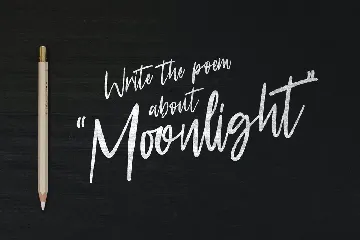 Write the poem
about
"Moonlight"